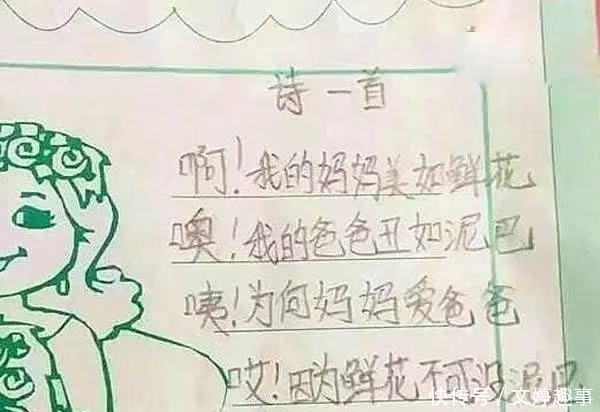 诗一首
啊！我的妈妈美如鲜花
噢！我的爸爸丑如泥巴
咦！为何妈妈爱爸爸
哎！因为鲜花不可没泥巴
快传号／文婷趣事